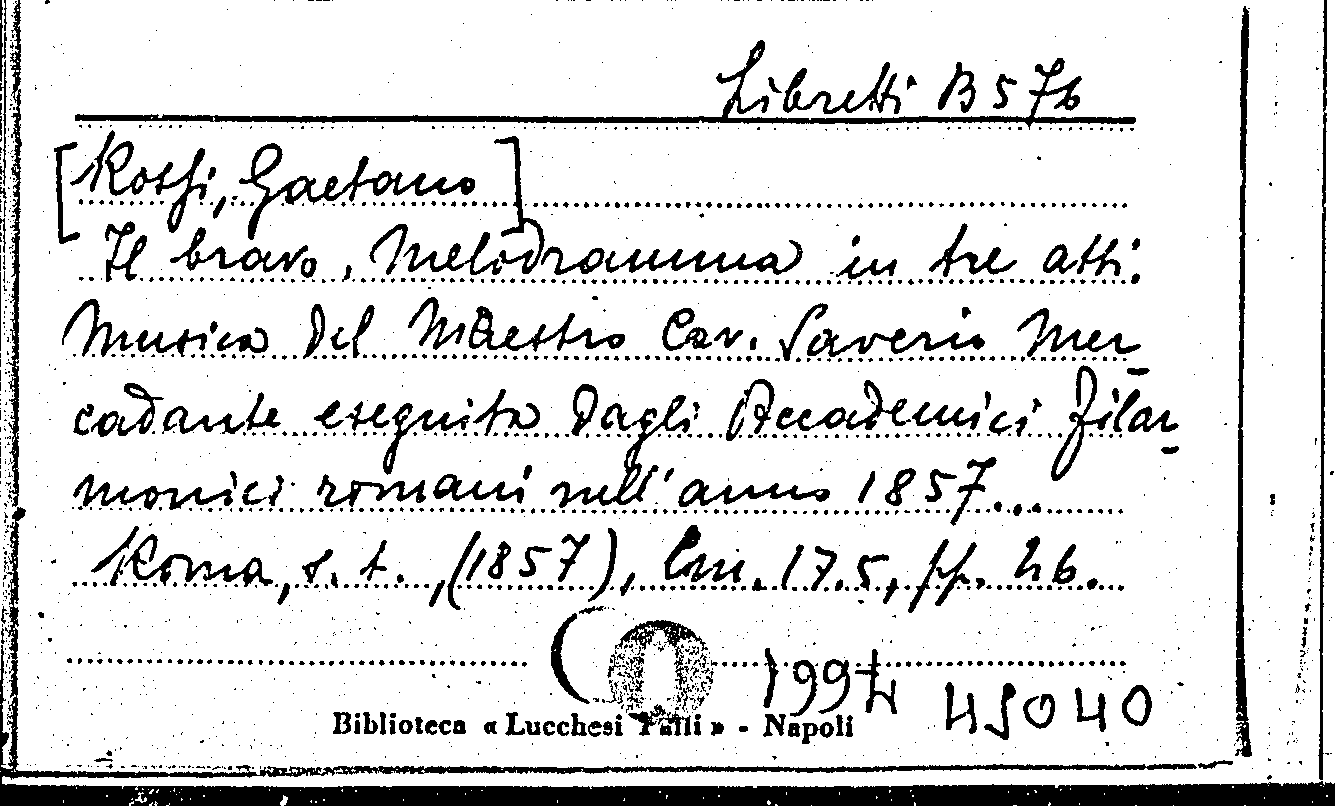 Libretti B 576
[Rossi, Gaetano]
Il bravo, Melodramma in tre atti.
Musica del Maestro Cav. Saverio Mer-
cadante eseguito dagli Accademici Filar-
monici romani nell'anno 1857...
Roma, s. t., (1857), Cm. 17.5, pp. 46.
45040
Biblioteca « Lucchesi Palli » - Napoli